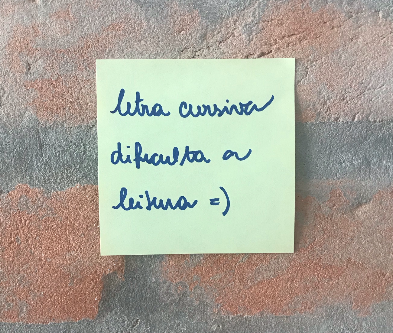 letra cursiva
dificulta a
leitura =)